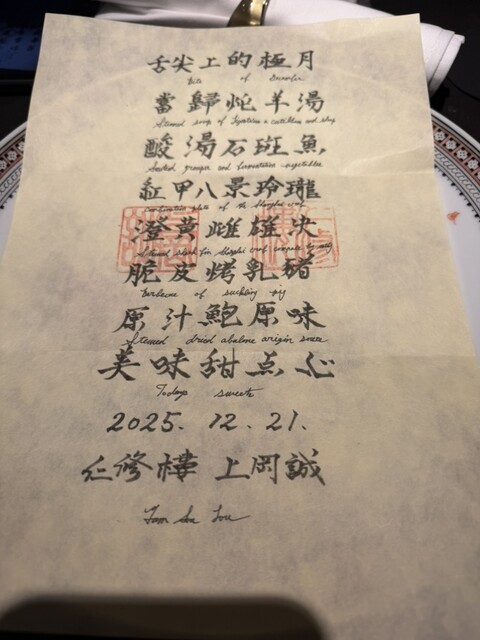 舌尖上的極月
of December
當歸炖羊湯
Steamed soup of
酸湯石斑魚
grouper and fermentation vegetables
紅甲八景玲瓏
combination plate of the Shanghai crab
澄黄雌雄決
Shanghai crab
脆皮烤乳豬
Barbecue of suckling pig
原汁鮑原味
Steamed dried abalone origin sauce
美味甜点心
Todays sweets
2025. 12. 21.
仁修樓 上岡誠